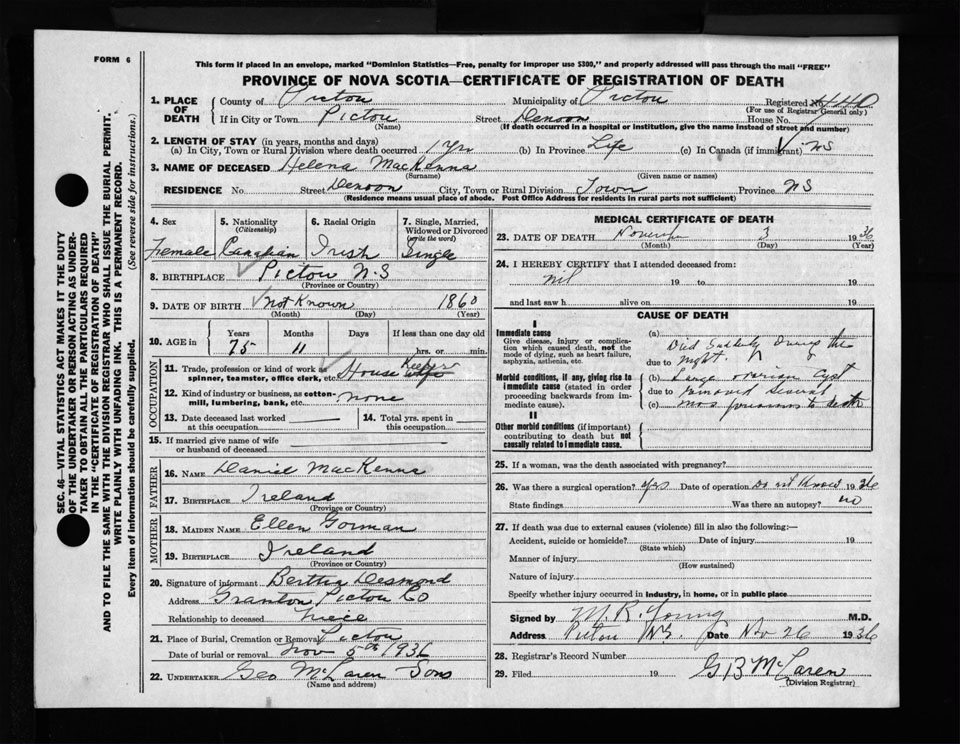 FORM 6
This form if placed in an envelope, marked "Dominion Statistics—Free, penalty for improper use $300," and properly addressed will pass through the mail "FREE"
PROVINCE OF NOVA SCOTIA—CERTIFICATE OF REGISTRATION OF DEATH
SEC. 46—VITAL STATISTICS ACT MAKES IT THE DUTY
OF THE UNDERTAKER OR PERSON ACTING AS UNDER-
TAKER TO OBTAIN ALL THE PARTICULARS REQUIRED
IN THE "CERTIFICATE OF REGISTRATION OF DEATH"
AND TO FILE THE SAME WITH THE DIVISION REGISTRAR WHO SHALL ISSUE THE BURIAL PERMIT.
WRITE PLAINLY WITH UNFADING INK. THIS IS A PERMANENT RECORD.
Every item of information should be carefully supplied. (See reverse side for instructions.)
1. PLACE OF DEATH
County of Pictou Municipality of Pictou Registered No. 440
(For use of Registrar General only)
If in City or Town Pictou Street Denoon House No.
(Name) (If death occurred in a hospital or institution, give the name instead of street and number)
2. LENGTH OF STAY (in years, months and days)
(a) In City, Town or Rural Division where death occurred 1 yr (b) In Province Life (c) In Canada (if immigrant) NS
3. NAME OF DECEASED Helena MacKenna
(Surname) (Given name or names)
RESIDENCE No. Street Denoon City, Town or Rural Division Town Province NS
(Residence means usual place of abode. Post Office Address for residents in rural parts not sufficient)
4. Sex 5. Nationality (Citizenship) 6. Racial Origin 7. Single, Married, Widowed or Divorced (Write the word)
Female Canadian Irish Single
8. BIRTHPLACE Pictou N.S
(Province or Country)
9. DATE OF BIRTH not Known 1860
(Month) (Day) (Year)
10. AGE in Years Months Days If less than one day old
75 11 hrs. or min.
OCCUPATION
11. Trade, profession or kind of work as spinner, teamster, office clerk, etc. House wife Keeper
12. Kind of industry or business, as cotton-mill, lumbering, bank, etc. none
13. Date deceased last worked at this occupation
14. Total yrs. spent in this occupation
15. If married give name of wife or husband of deceased
FATHER
16. NAME Daniel MacKenna
17. BIRTHPLACE Ireland
(Province or Country)
MOTHER
18. MAIDEN NAME Ellen Gorman
19. BIRTHPLACE Ireland
(Province or Country)
20. Signature of informant Bertha Desmond
Address Granton Pictou Co
Relationship to deceased niece
21. Place of Burial, Cremation or Removal Pictou
Date of burial or removal Nov 5th 1936
22. UNDERTAKER Geo McLaren Sons
(Name and address)
MEDICAL CERTIFICATE OF DEATH
23. DATE OF DEATH November 3 1936
(Month) (Day) (Year)
24. I HEREBY CERTIFY that I attended deceased from:
nil 19 to 19
and last saw h alive on 19
CAUSE OF DEATH
I
Immediate cause
Give disease, injury or complication which caused death, not the mode of dying, such as heart failure, asphyxia, asthenia, etc.
(a) Died Suddenly During the
due to night.
Morbid conditions, if any, giving rise to immediate cause (stated in order proceeding backwards from immediate cause).
(b) Large ovarian cyst
due to removed several
(c) mos previous to death
II
Other morbid conditions (if important) contributing to death but not causally related to immediate cause.
25. If a woman, was the death associated with pregnancy?
26. Was there a surgical operation? yes Date of operation Do not know 1936
State findings Was there an autopsy? no
27. If death was due to external causes (violence) fill in also the following:—
Accident, suicide or homicide? Date of injury 19
(State which)
Manner of injury
(How sustained)
Nature of injury
Specify whether injury occurred in industry, in home, or in public place
Signed by M. R. Young M.D.
Address Pictou NS. Date Nov 26 1936
28. Registrar's Record Number
29. Filed 19 G B McLaren
(Division Registrar)